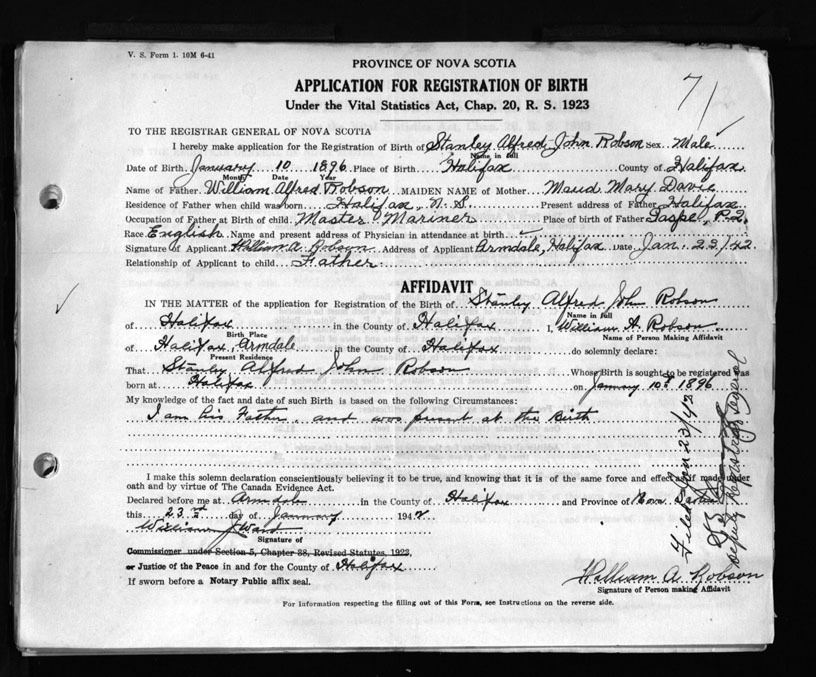 V. S. Form 1. 10M 6-41
PROVINCE OF NOVA SCOTIA
APPLICATION FOR REGISTRATION OF BIRTH
Under the Vital Statistics Act, Chap. 20, R. S. 1923
71
TO THE REGISTRAR GENERAL OF NOVA SCOTIA
I hereby make application for the Registration of Birth of Stanley Alfred John Robson Sex Male
Name in full
Date of Birth January 10 1896 Place of Birth Halifax County of Halifax
Month Date Year
Name of Father William Alfred Robson MAIDEN NAME of Mother Maud Mary Davie
Residence of Father when child was born Halifax, N. S Present address of Father Halifax
Occupation of Father at Birth of child Master Mariner Place of birth of Father Gaspe, P.Q.
Race English Name and present address of Physician in attendance at birth
Signature of Applicant William A. Robson Address of Applicant Armdale, Halifax Date Jan. 23/42
Relationship of Applicant to child Father
AFFIDAVIT
IN THE MATTER of the application for Registration of the Birth of Stanley Alfred John Robson
Name in full
of Halifax in the County of Halifax I, William A. Robson
Birth Place Name of Person Making Affidavit
of Halifax, Armdale in the County of Halifax do solemnly declare:
Present Residence
That Stanley Alfred John Robson Whose Birth is sought to be registered was
born at Halifax on January 10th 1896
My knowledge of the fact and date of such Birth is based on the following Circumstances:
I am his Father, and was present at the Birth
I make this solemn declaration conscientiously believing it to be true, and knowing that it is of the same force and effect as if made under
oath and by virtue of The Canada Evidence Act.
Declared before me at Armdale in the County of Halifax and Province of Nova Scotia
this 23rd day of January 1942
William J Ward
Signature of
Commissioner under Section 5, Chapter 38, Revised Statutes, 1922,
or Justice of the Peace in and for the County of Halifax
If sworn before a Notary Public affix seal.
William A. Robson
Signature of Person making Affidavit
For information respecting the filling out of this Form, see Instructions on the reverse side.
Filed Jan 23/42
Deputy Registrar General